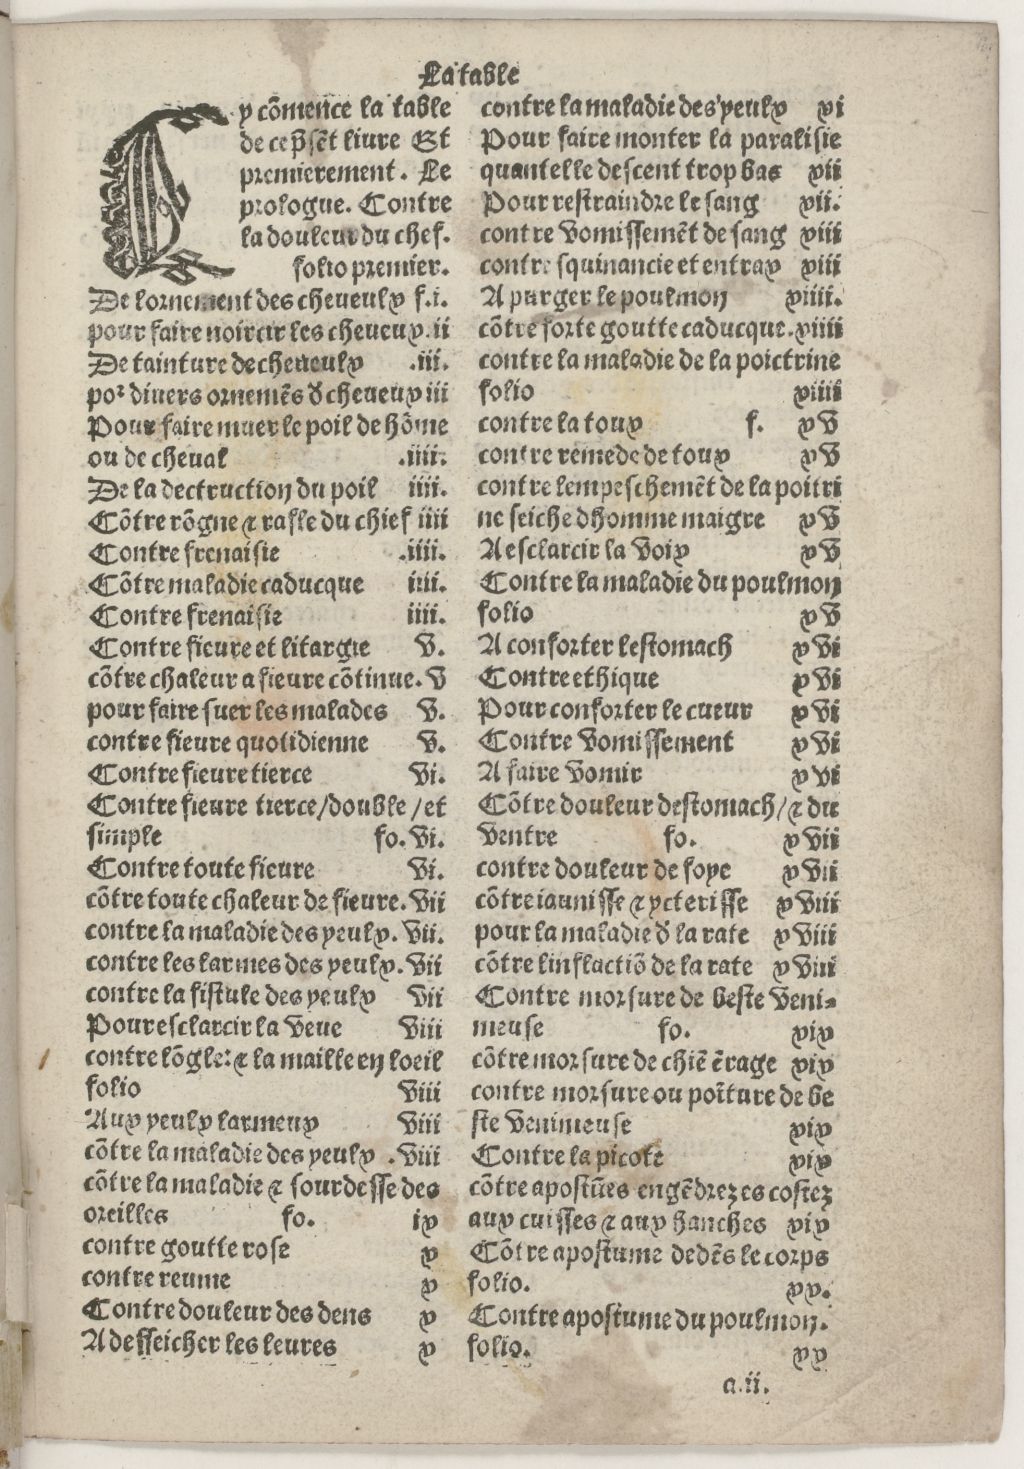 La table
Cy cõmence la table
de ce p̃sẽt liure Et
premierement. Le
prologue. Contre
la douleur du chef.
folio premier.
De lornement des cheueulx f.i.
pour faire noircir les cheueux.ii
De tainture de cheueulx .iii.
poᷣ diuers ornemẽs d̕ cheueux iii
Pour faire muer le poil de hõme
ou de cheual .iiii.
De la dectruction du poil iiii.
Cõtre rõgne ⁊ rafle du chief iiii
Contre frenaisie .iiii.
Cõtre maladie caducque iiii.
Contre frenaisie iiii.
Contre fieure et litargie v.
cõtre chaleur a fieure cõtinue. v
pour faire suer les malades v.
contre fieure quotidienne v.
Contre fieure tierce vi.
Contre fieure tierce/double/et
simple fo. vi.
Contre toute fieure vi.
cõtre toute chaleur de fieure. vii
contre la maladie des yeulx. vii.
contre les larmes des yeulx. vii
contre la fistule des yeulx vii
Pour esclarcir la veue viii
contre lõgle: ⁊ la maille en loeil
folio viii
Aux yeulx larmeux viii
cõtre la maladie des yeulx .viii
cõtre la maladie ⁊ sourdesse des
oreilles fo. ix
contre goutte rose x
contre reume x
Contre douleur des dens x
A desseicher les leures x
contre la maladie des yeulx xi
Pour faire monter la paralisie
quant elle descent trop bas xii
Pour restraindre le sang xii.
contre vomissemẽt de sang xiii
contre squinancie et entrax xiii
A purger le poulmon xiiii.
cõtre forte goutte caducque. xiiii
contre la maladie de la poictrine
folio xiiii
contre la toux f. xv
contre remede de toux xv
contre lempeschemẽt de la poitri
ne seiche dhomme maigre xv
A esclarcir la voix xv
Contre la maladie du poulmon
folio xv
A conforter lestomach xvi
Contre ethique xvi
Pour conforter le cueur xvi
Contre vomissement xvi
A faire vomir xvi
Cõtre douleur destomach/⁊ du
ventre fo. xvii
contre douleur de foye xvii
cõtre iaunisse ⁊ ycterisse xviii
pour la maladie d̕ la rate xviii
cõtre linflactiõ de la rate xviii
Contre morsure de beste veni-
meuse fo. xix
cõtre morsure de chiẽ ẽrage xix
contre morsure ou poĩture de be
ste venimeuse xix
Contre la picote xix
cõtre apostũes engẽdrez es costez
aux cuisses ⁊ aux hanches xix
Cõtre apostume dedẽs le corps
folio. xx.
Contre apostume du poulmon.
folio. xx
a.ii.